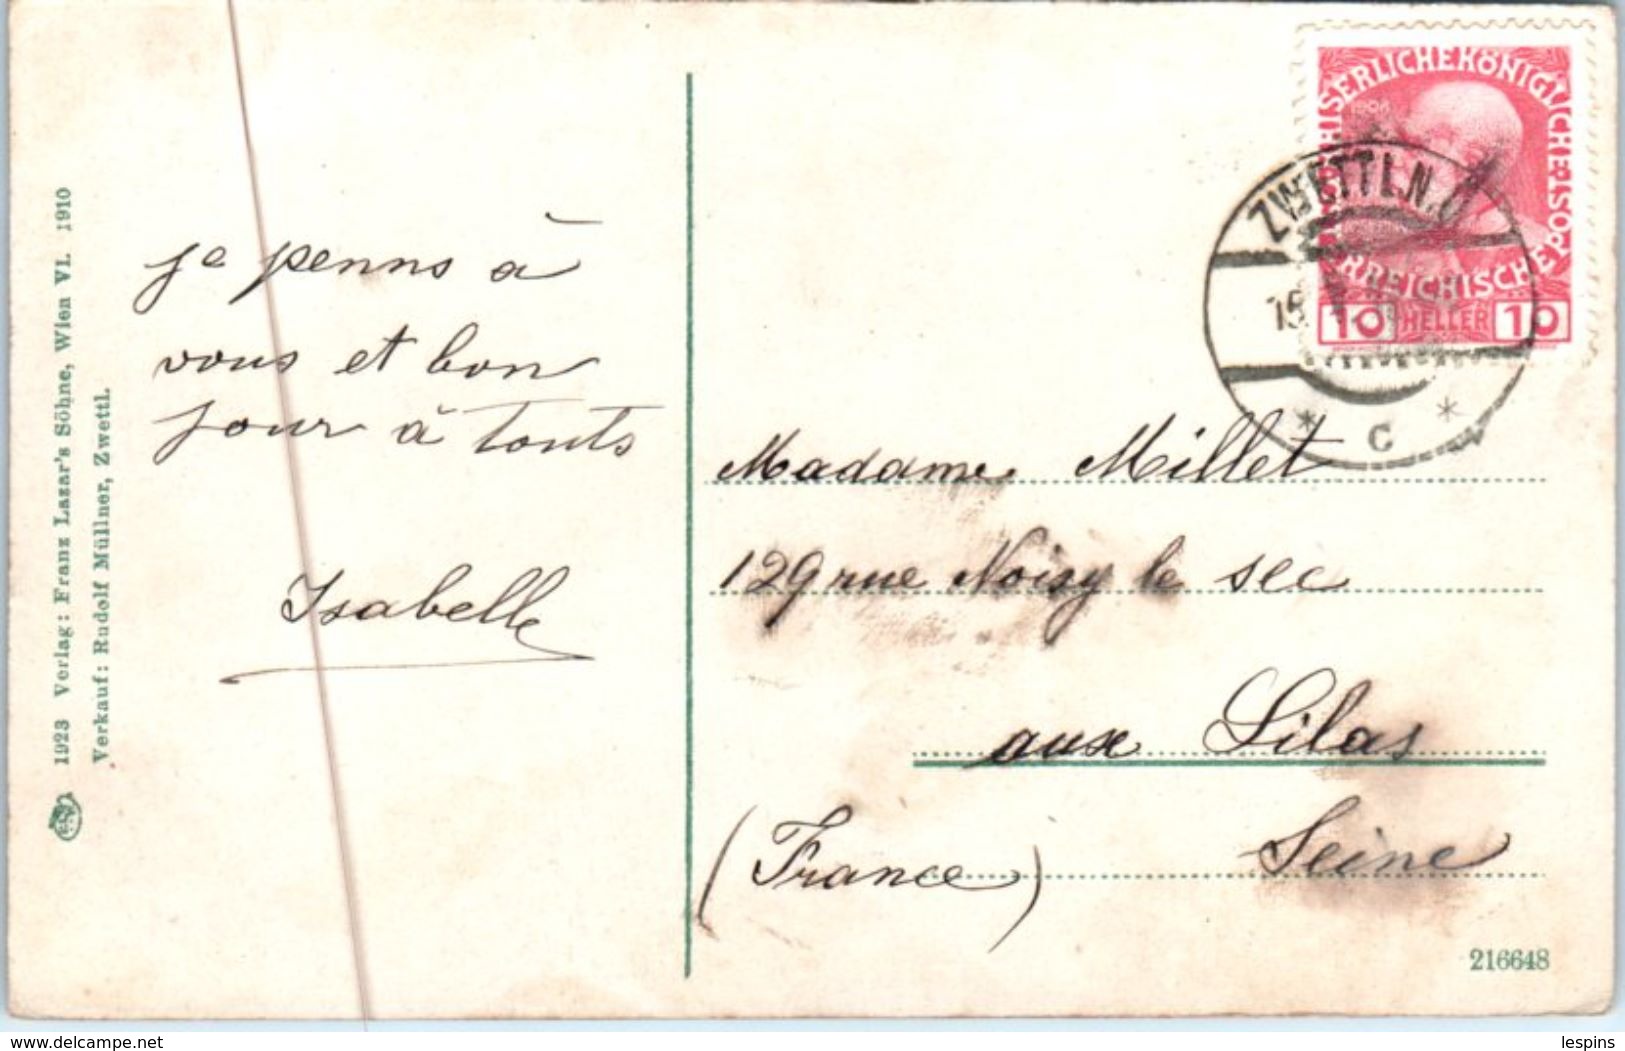 1923 Verlag: Franz Lazar's Söhne, Wien VI. 1910
Verkauf: Rudolf Müllner, Zwettl.
je penns à
vous et bon
jour à touts
Isabelle
KAISERLICHEKÖNIGLICHE ÖSTERREICHISCHE POST
1908
10 HELLER 10
ZWETTL N.Ö
15
* C *
Madame Millet
129 rue Noisy le sec
aux Lilas
(France) Seine
216648
delcampe.net
lespins